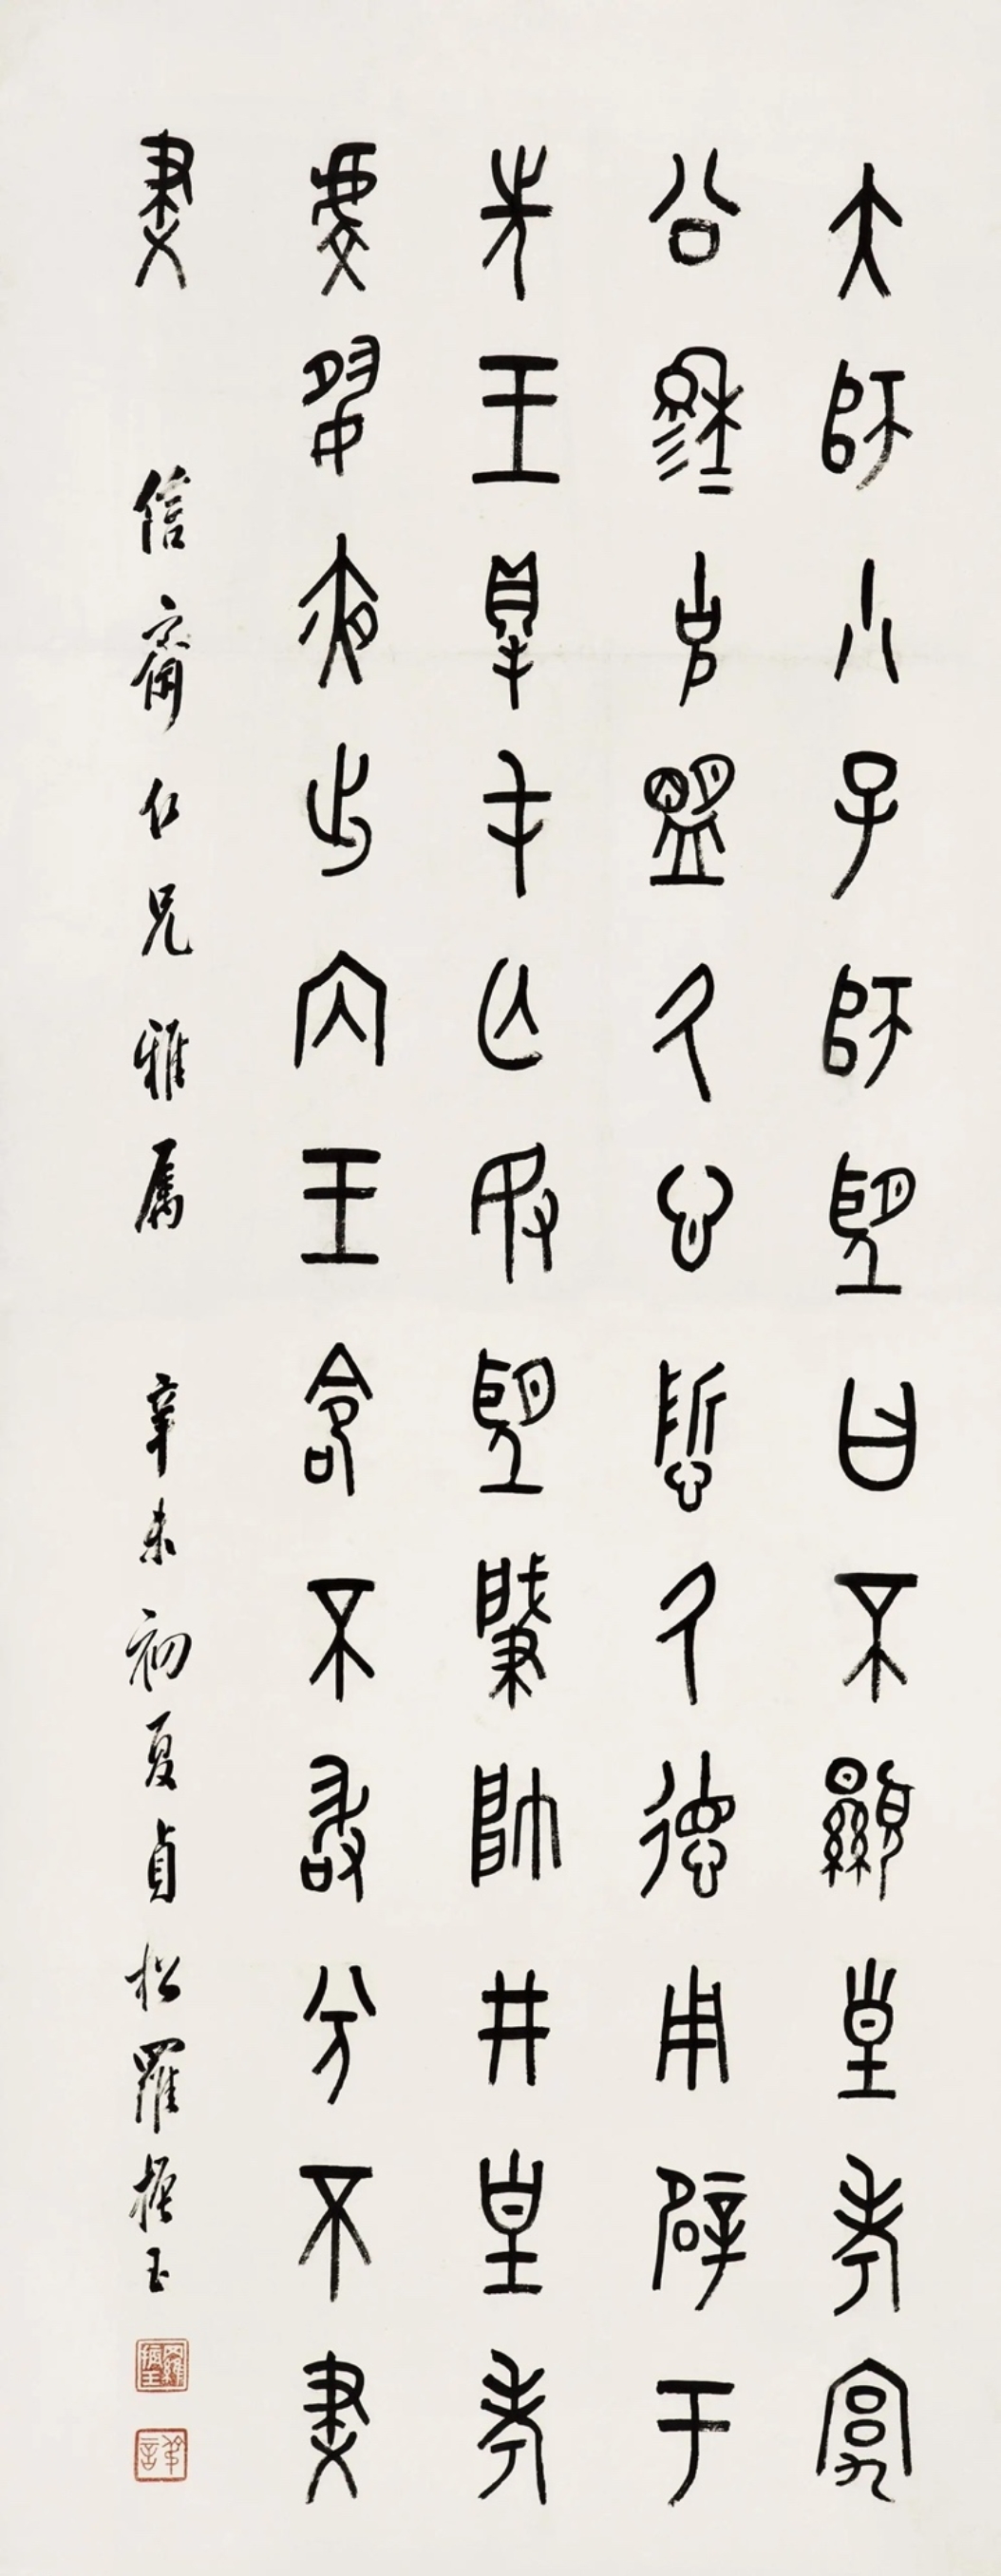 大師小子師望曰不顯皇考宄
公穆＝克盟厥心悊厥德用辟于
先王得屯亡敃望肇帥井皇考
虔夙夜出內王命不敢分不妻
妻
信齋仁兄雅屬 辛未初夏貞松羅振玉
羅振玉
叔言